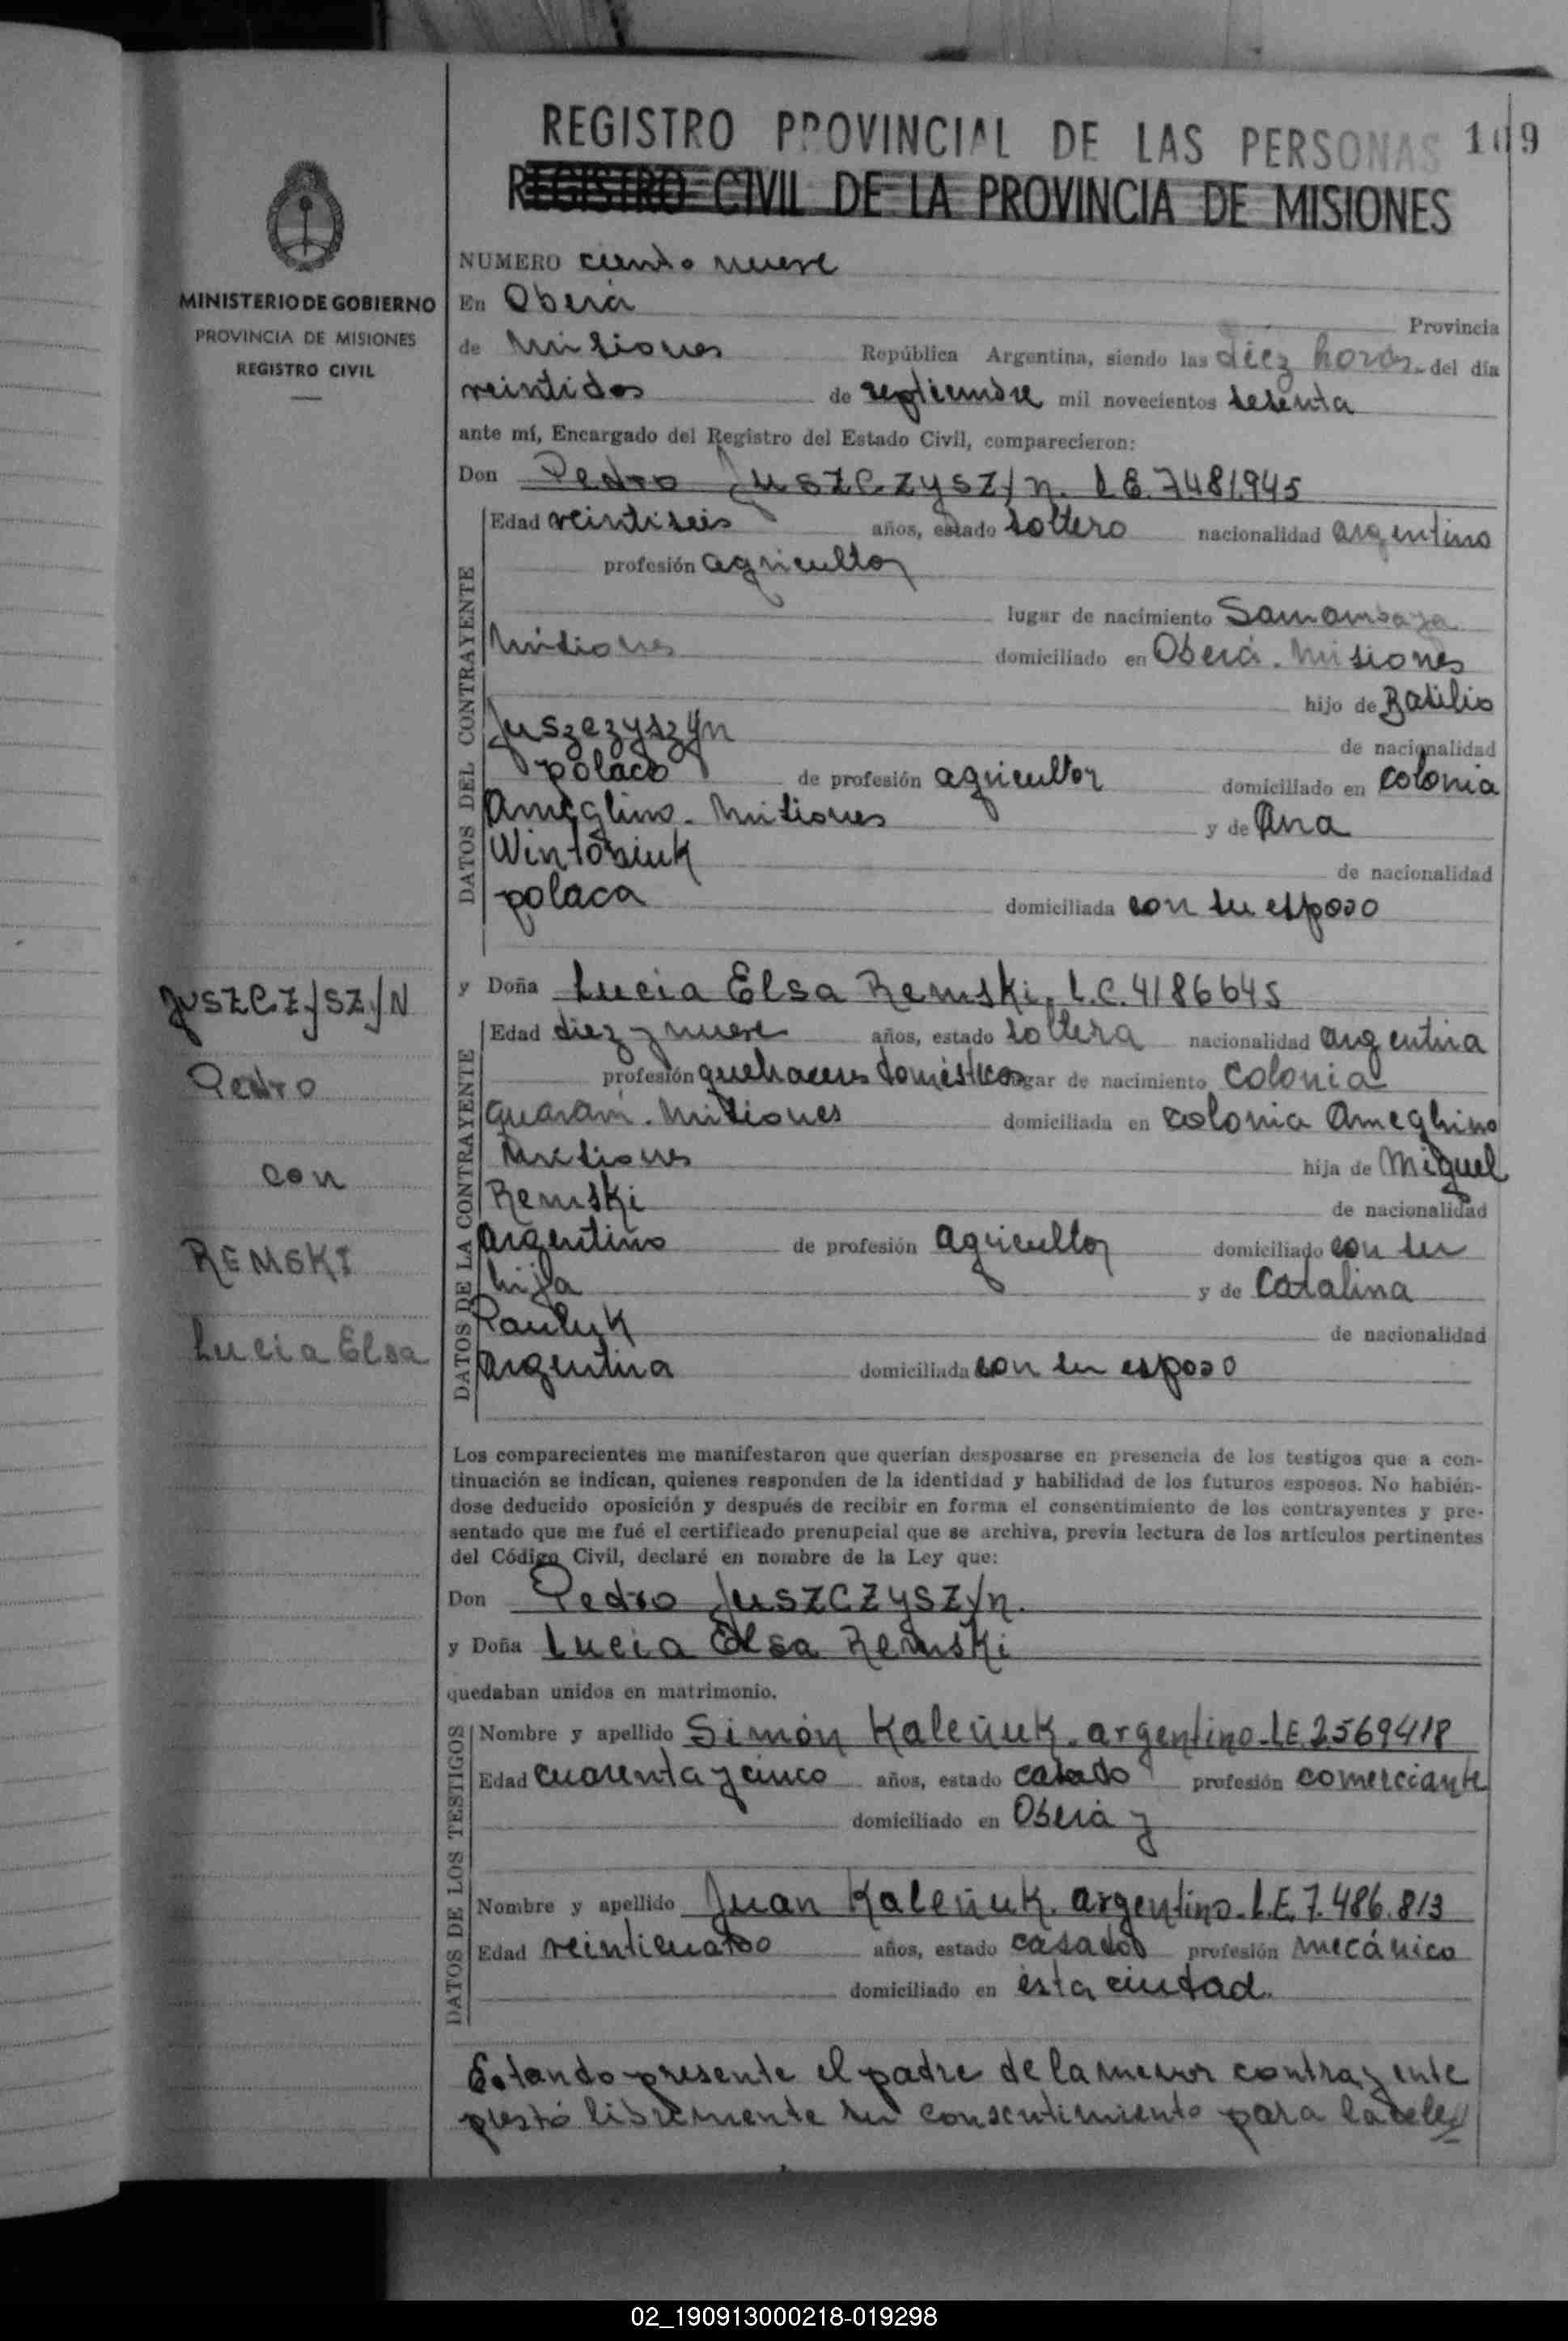 REGISTRO PROVINCIAL DE LAS PERSONAS 109
REGISTRO CIVIL DE LA PROVINCIA DE MISIONES
MINISTERIO DE GOBIERNO
PROVINCIA DE MISIONES
REGISTRO CIVIL
NUMERO ciento nueve
En Oberá Provincia
de Misiones República Argentina, siendo las diez horas del día
veintidos de septiembre mil novecientos sesenta
ante mí, Encargado del Registro del Estado Civil, comparecieron:
Don Pedro Juszczyszyn. L.E. 7481945
DATOS DEL CONTRAYENTE
Edad veintiseis años, estado soltero nacionalidad argentino
profesión agricultor
lugar de nacimiento Samambaya
Misiones domiciliado en Oberá. Misiones
hijo de Basilio
Juszczyszyn de nacionalidad
polaco de profesión agricultor domiciliado en colonia
Ameghino. Misiones y de Ana
Wintoniuk de nacionalidad
polaca domiciliada con su esposo
JUSZCZYSZYN
Pedro
con
REMSKI
Lucia Elsa
y Doña Lucia Elsa Remski. L.C. 4186645
DATOS DE LA CONTRAYENTE
Edad diez y nueve años, estado soltera nacionalidad argentina
profesión quehaceres domésticos lugar de nacimiento colonia
Guaraní. Misiones domiciliada en colonia Ameghino
Misiones hija de Miguel
Remski de nacionalidad
argentino de profesión agricultor domiciliado con su
hija y de Catalina
Pauluk de nacionalidad
argentina domiciliada con su esposo
Los comparecientes me manifestaron que querían desposarse en presencia de los testigos que a con-
tinuación se indican, quienes responden de la identidad y habilidad de los futuros esposos. No habién-
dose deducido oposición y después de recibir en forma el consentimiento de los contrayentes y pre-
sentado que me fué el certificado prenupcial que se archiva, previa lectura de los artículos pertinentes
del Código Civil, declaré en nombre de la Ley que:
Don Pedro Juszczyszyn.
y Doña Lucia Elsa Remski
quedaban unidos en matrimonio.
DATOS DE LOS TESTIGOS
Nombre y apellido Simón Kaleñuk. argentino. L.E. 2569418
Edad cuarenta y cinco años, estado casado profesión comerciante
domiciliado en Oberá y
Nombre y apellido Juan Kaleñuk. argentino. L.E. 7.486.813
Edad veinticuatro años, estado casado profesión mecánico
domiciliado en ésta ciudad.
Estando presente el padre de la menor contrayente
prestó libremente su consentimiento para la cele
02_190913000218-019298